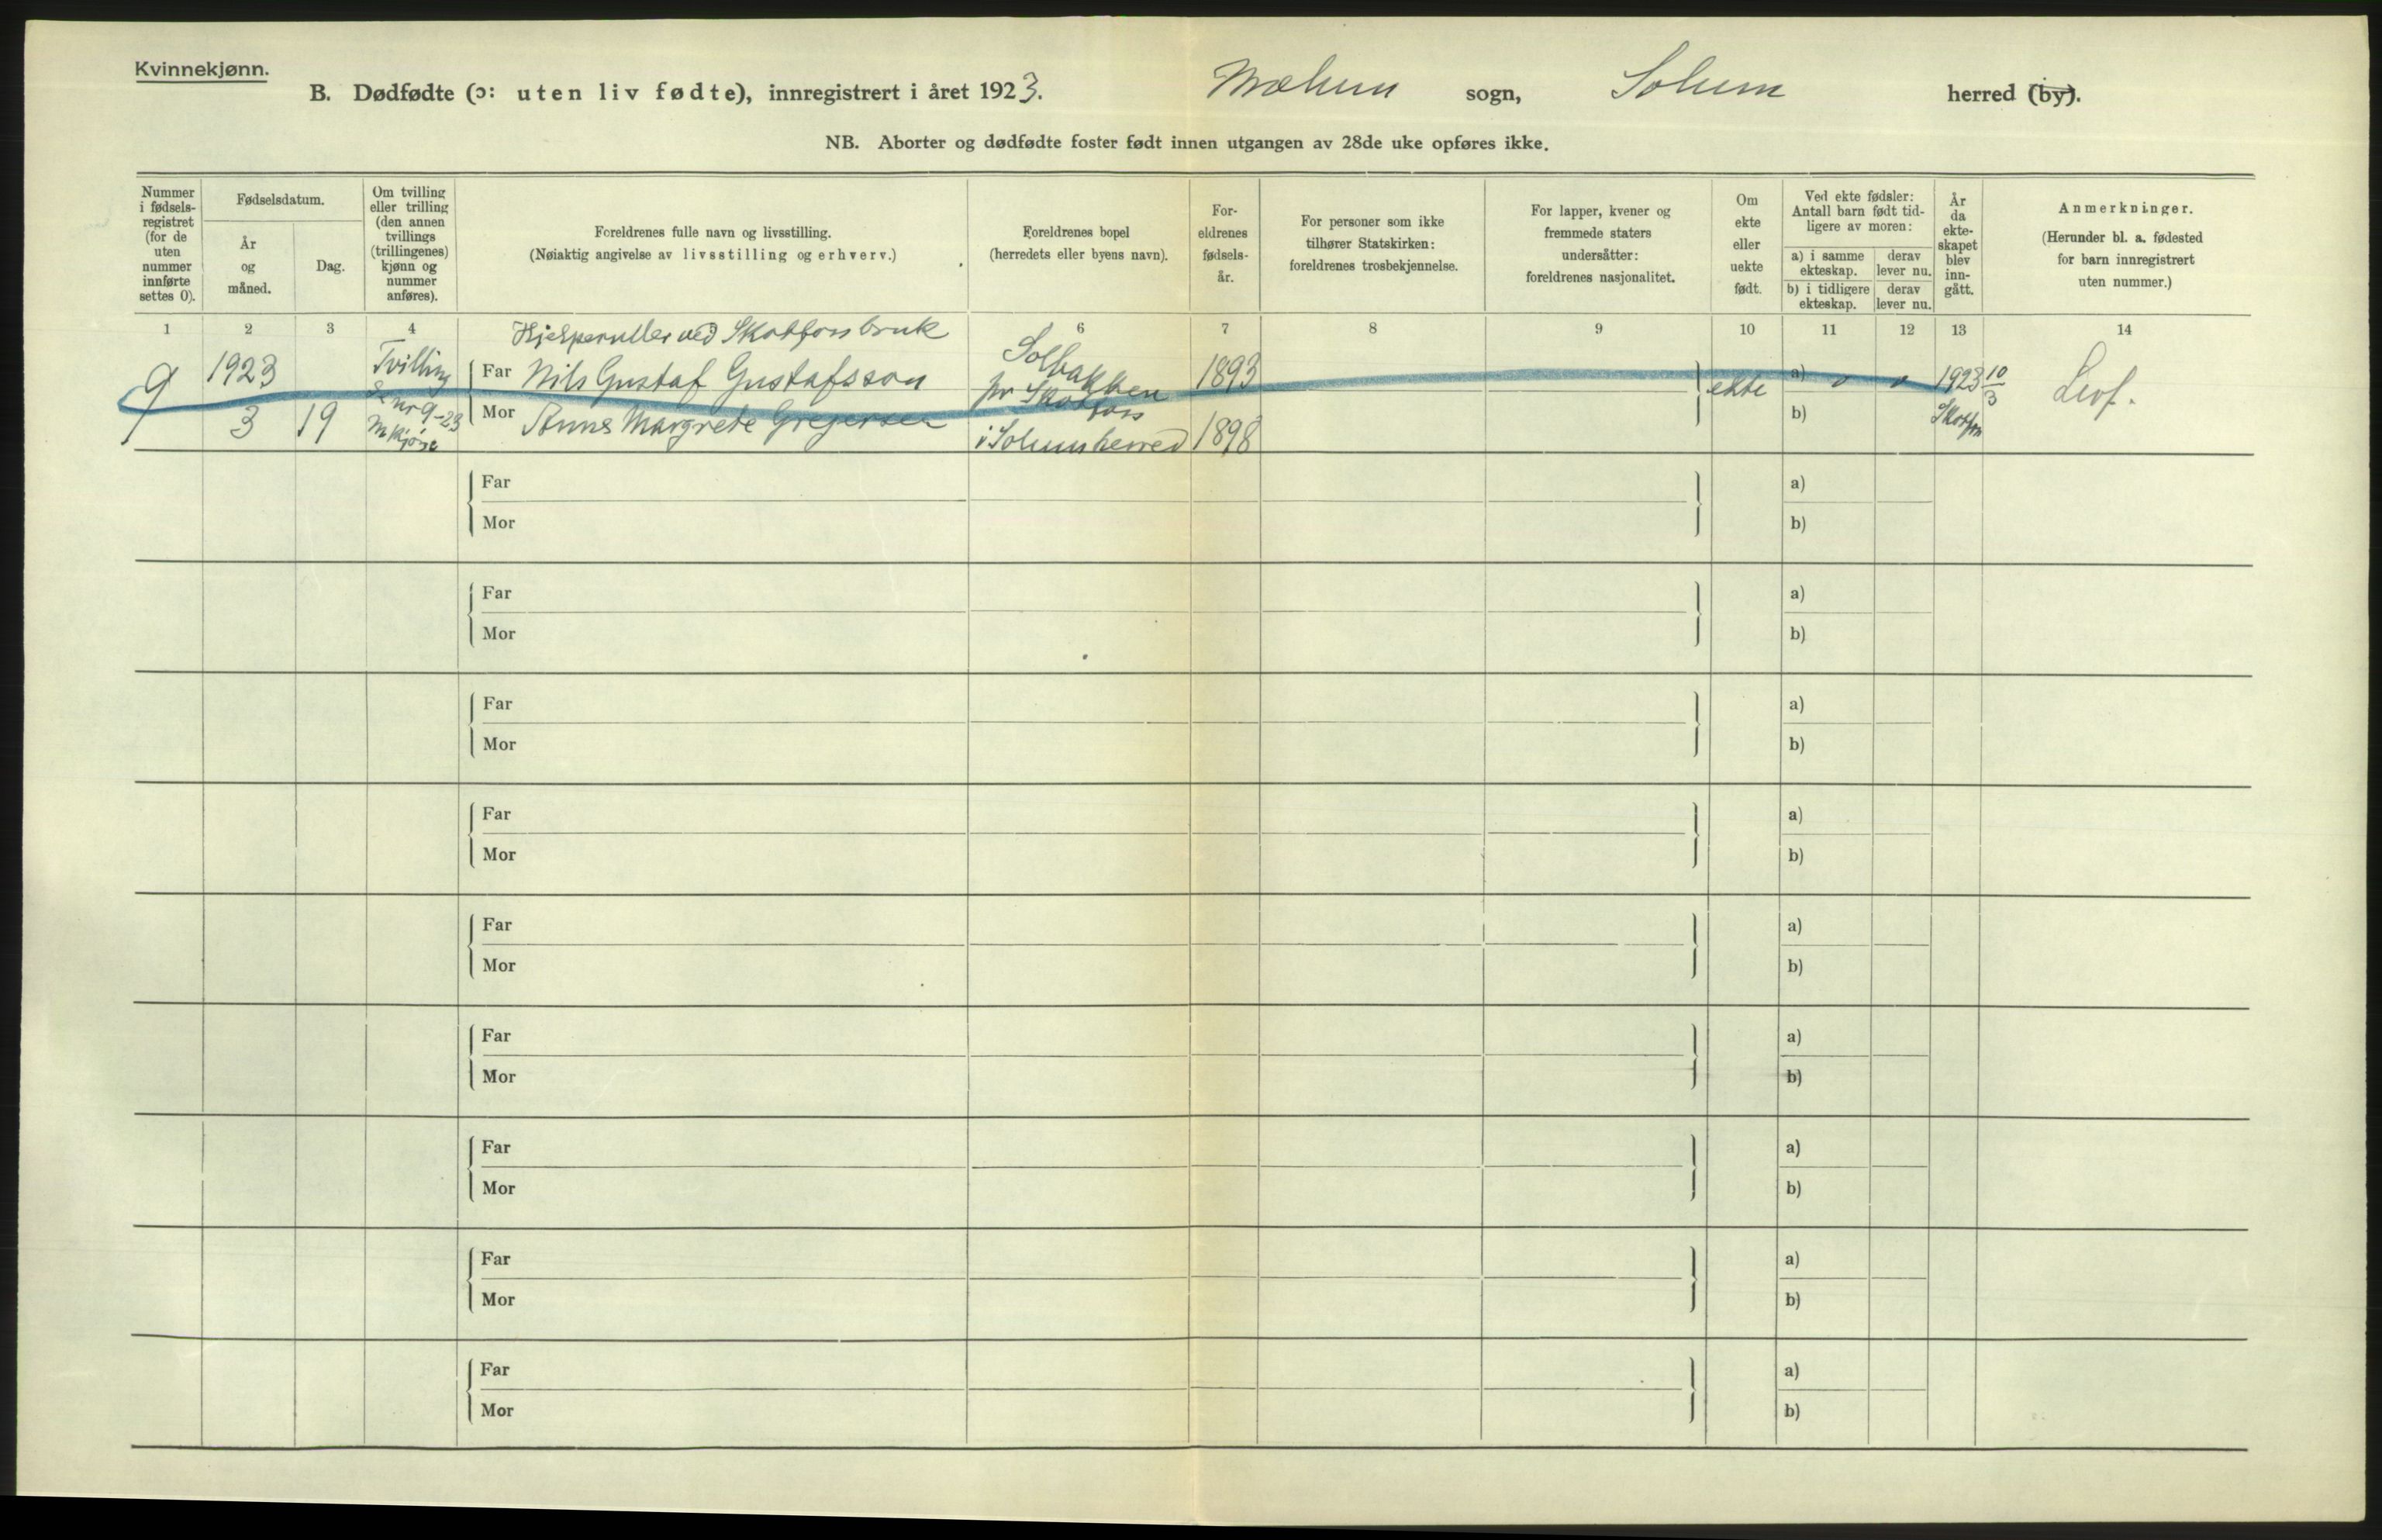 Kvinnekjønn.
B. Dødfødte (ɔ: uten liv fødte), innregistrert i året 1923. Mælum sogn, Solum herred (by).
NB. Aborter og dødfødte foster født innen utgangen av 28de uke opføres ikke.
Nummer i fødsels- registret (for de uten nummer innførte settes 0).
Fødselsdatum.
År og måned.
Dag.
Om tvilling eller trilling (den annen tvillings (trillingenes) kjønn og nummer anføres).
Foreldrenes fulle navn og livsstilling.
(Nøiaktig angivelse av livsstilling og erhverv.)
Foreldrenes bopel
(herredets eller byens navn).
For- eldrenes fødsels- år.
For personer som ikke tilhører Statskirken: foreldrenes trosbekjennelse.
For lapper, kvener og fremmede staters undersåtter: foreldrenes nasjonalitet.
Om ekte eller uekte født.
Ved ekte fødsler: Antall barn født tid- ligere av moren:
a) i samme ekteskap.
derav lever nu.
b) i tidligere ekteskap.
derav lever nu.
År da ekte- skapet blev inn- gått.
Anmerkninger.
(Herunder bl. a. fødested for barn innregistrert uten nummer.)
1 2 3 4 6 7 8 9 10 11 12 13 14
Hjelperuller ved Skotfoss bruk
9 1923 Tvilling Far Nils Gustaf Gustafsson Solbakken 1893 ekte a) 0 0 1923 10/3
pr Skotfoss
3 19 nr 9-23 Mor Anna Margrete Gregersen i Solum herred 1898 b) Skotfoss
m kjønn
Far a)
Mor b)
Far a)
Mor b)
Far a)
Mor b)
Far a)
Mor b)
Far a)
Mor b)
Far a)
Mor b)
Far a)
Mor b)
Far a)
Mor b)
Far a)
Mor b)